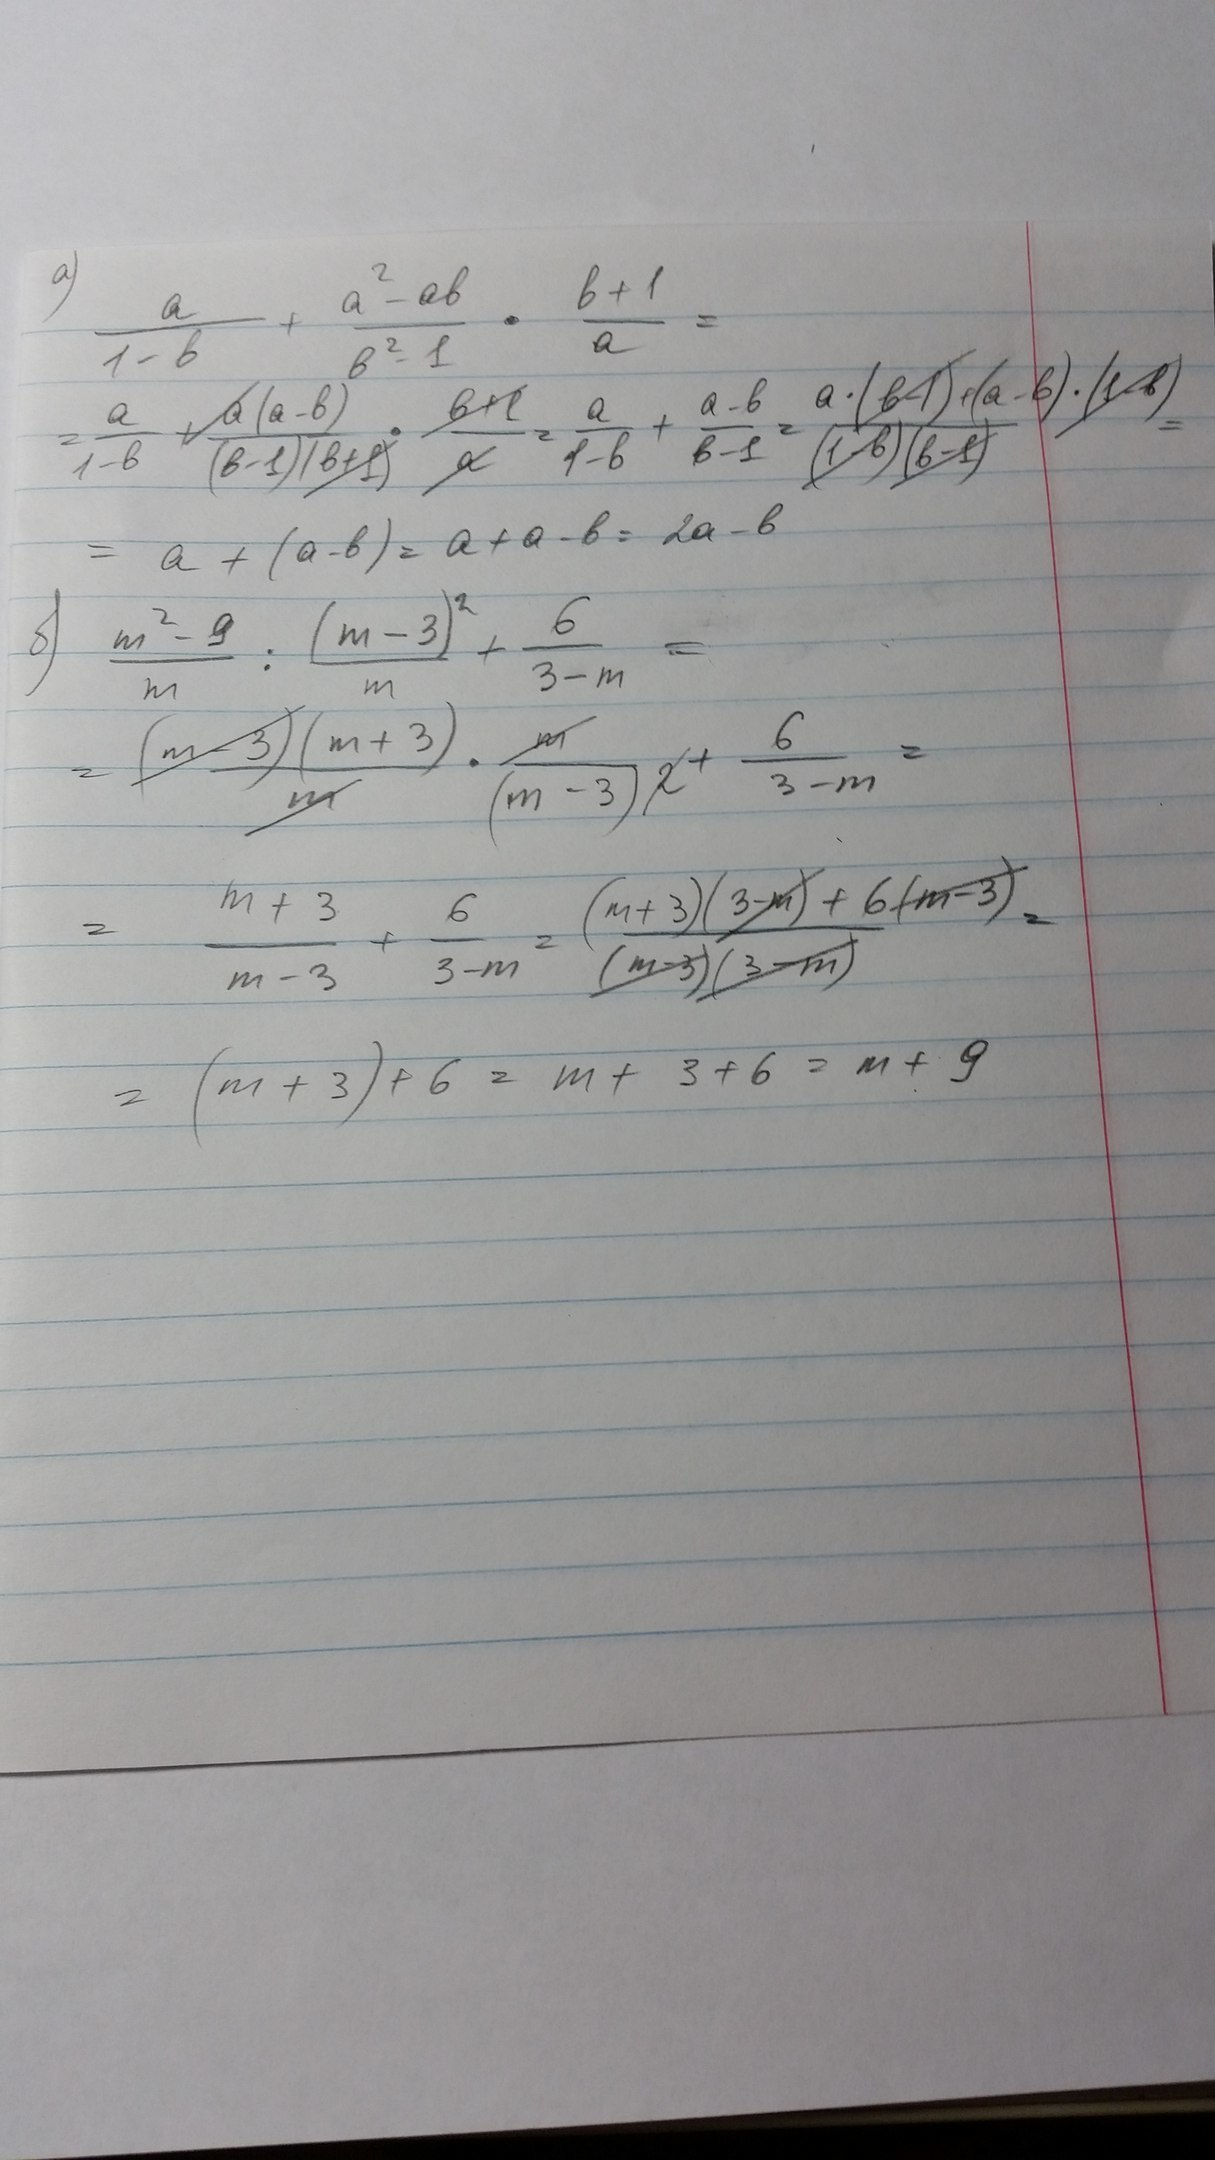 а) a/(1-b) + (a²-ab)/(b²-1) · (b+1)/a =
= a/(1-b) + a(a-b)/((b-1)(b+1)) · (b+1)/a = a/(1-b) + (a-b)/(b-1) = (a·(b-1)+(a-b)·(1-b))/((1-b)(b-1)) =
= a + (a-b) = a+a-b = 2a-b
б) (m²-9)/m : (m-3)²/m + 6/(3-m) =
= (m-3)(m+3)/m · m/(m-3)² + 6/(3-m) =
= (m+3)/(m-3) + 6/(3-m) = ((m+3)(3-m)+6(m-3))/((m-3)(3-m)) =
= (m+3)+6 = m+3+6 = m+9